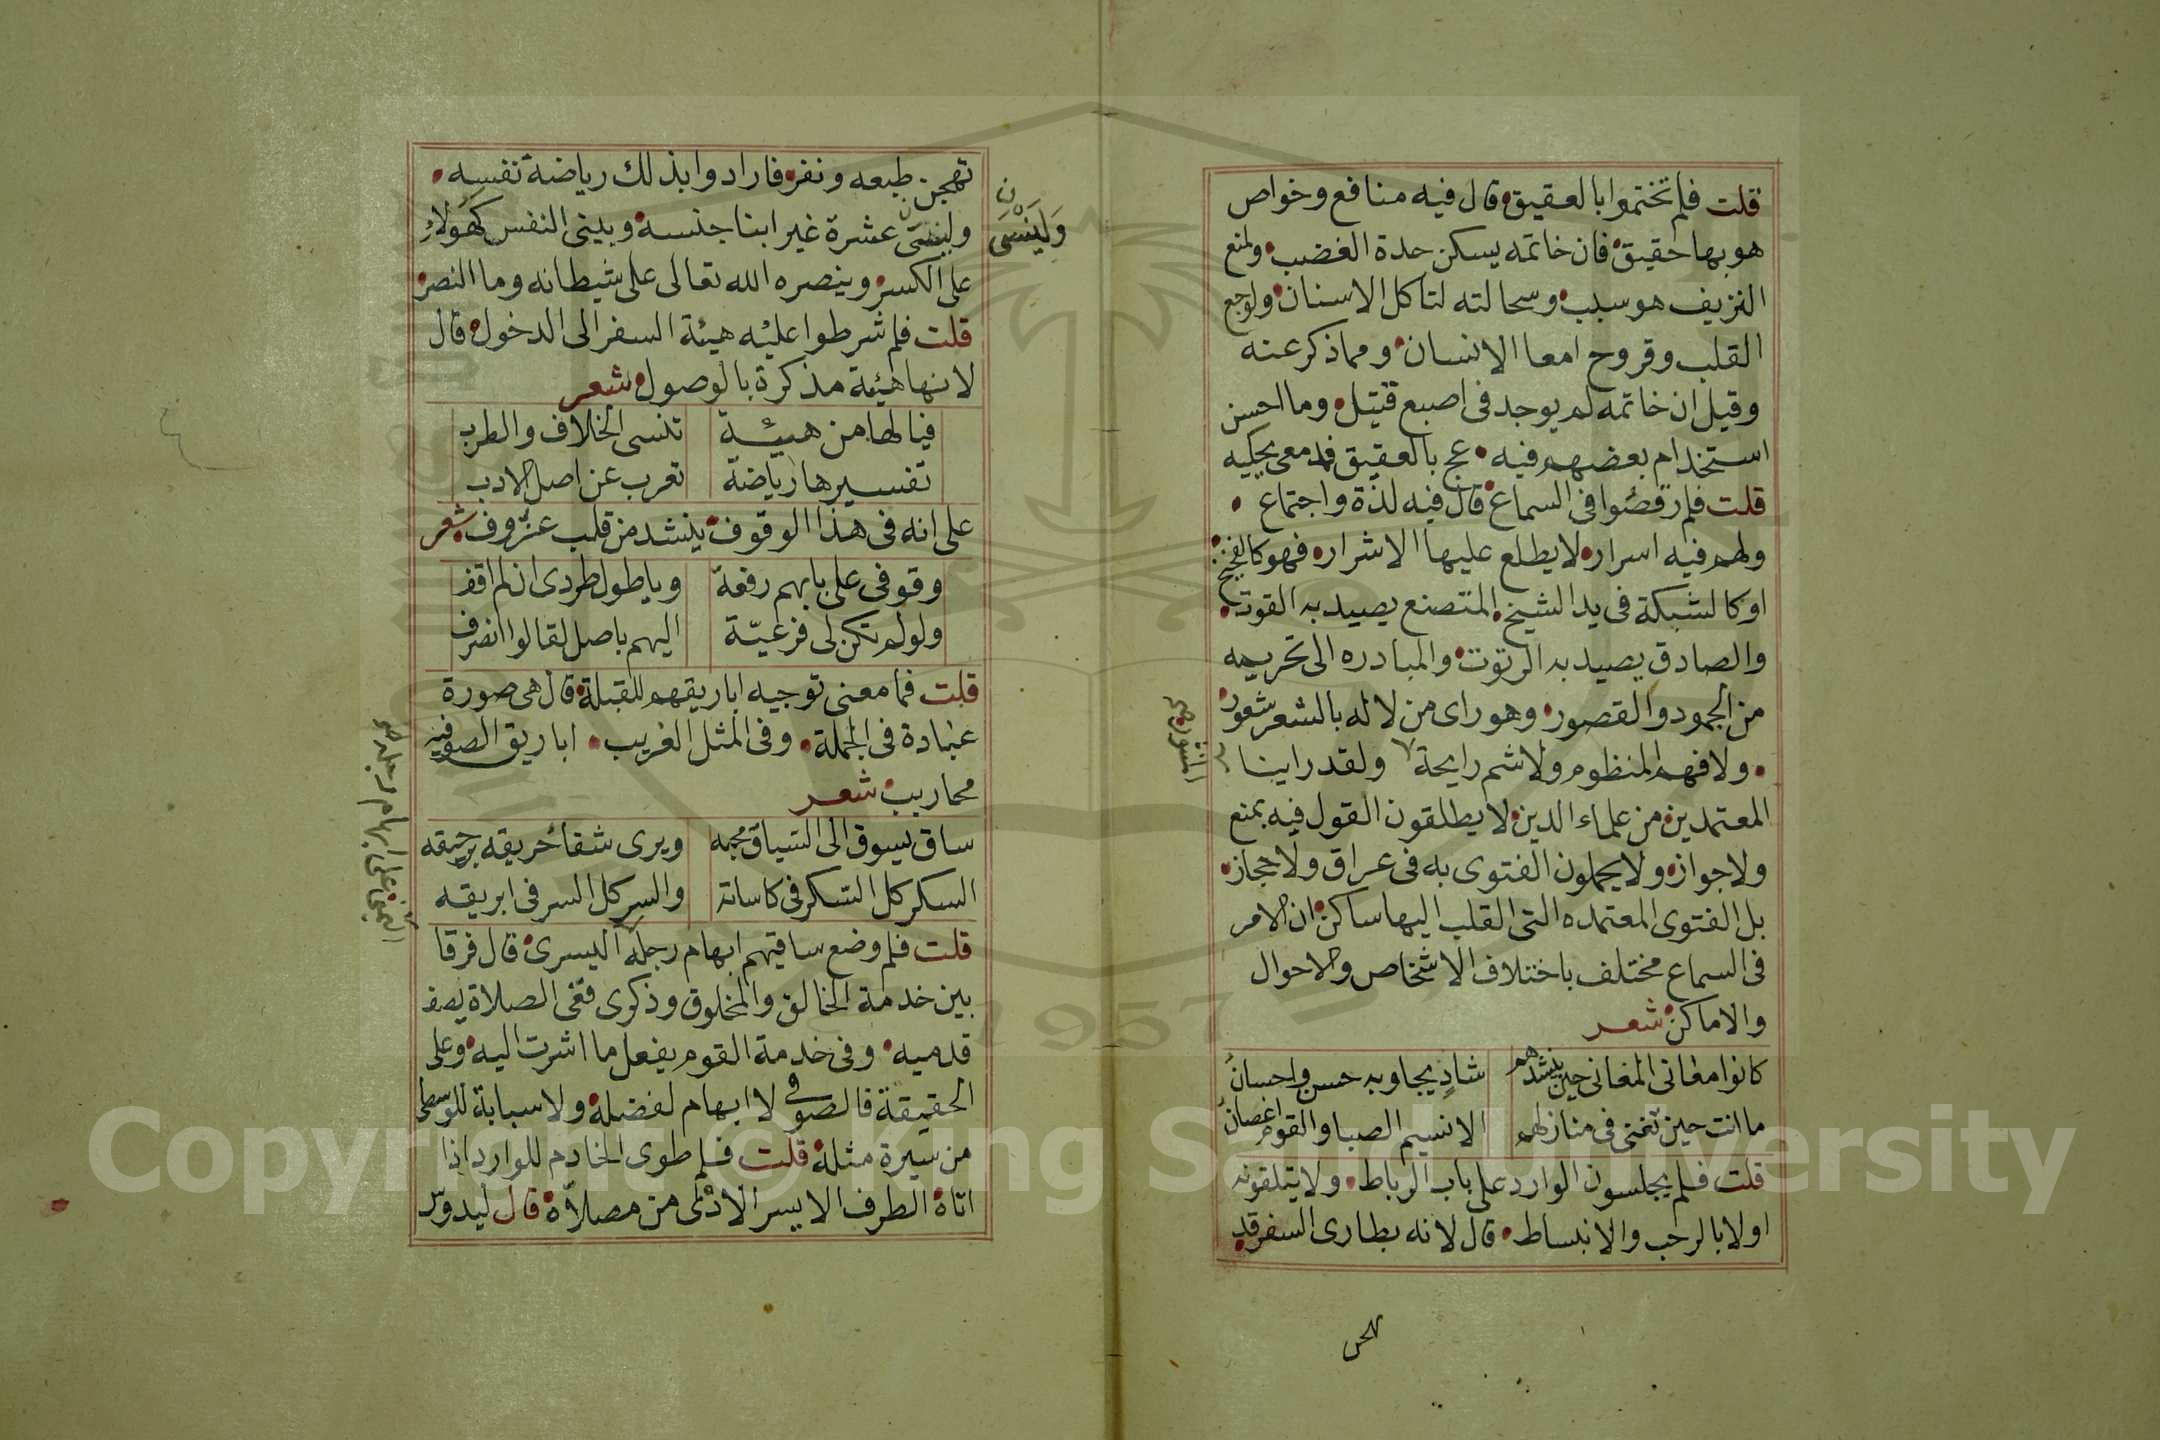 قلت فلم تختموا بالعقيق قال فيه منافع وخواص
هو بها حقيق فان خاتمه يسكن حدة الغضب ولمنع
النزيف هو سبب وسحالته لتاكل الاسنان ولوجع
القلب وقروح امعا الانسان ومما ذكر عنه
وقيل ان خاتمه لم يوجد في اصبع قتيل وما احسن
استخدام بعضهم فيه عج بالعقيق فدمعي يحكيه
قلت فلم رقصوا في السماع قال فيه لذة واجتماع
ولهم فيه اسرار لا يطلع عليها الاشرار فهو كالفخ
او كالشبكة في يد الشيخ المتصنع يصيد به القوت
والصادق يصيد به الرتوت والمبادره الى تحريمه
من الجمود والقصور وهو راى من لا له بالشعر شعور
ولا فهم المنظوم ولا شم رايحة ولقد راينا
المنثور صح
المعتمدين من علماء الدين لا يطلقون القول فيه بمنع
ولا جواز ولا يحملون الفتوى به في عراق ولا حجاز
بل الفتوى المعتمده التي القلب اليها ساكن ان الامر
في السماع مختلف باختلاف الاشخاص والاحوال
والاماكن شعر
كانوا مغاني المغاني حين ينشدهم شادٍ يجاوبه حسن واحسان
ما انت حين تغنى في منازلهم الا نسيم الصبا والقوم اغصان
قلت فلم يجلسون الوارد على باب الرباط ولا يتلقونه
اولا بالرحب والانبساط قال لانه بطارى السفر قد
تهجن طبعه ونفر فارادوا بذلك رياضة نفسه
ولينسى عشرة غير ابنا جنسه ويبنى النفس كهولاء
وَلِيَنْسَى ن
على الكسر وينصره الله تعالى على شيطانه وما النصر
قلت فلم شرطوا عليه هيئة السفر الى الدخول قال
لانها هيئة مذكرة بالوصول شعر
فيا لها من هيئة تنسى الخلاف والطرب
تفسيرها رياضة تعرب عن اصل الادب
على انه في هذا الوقوف ينشد من قلب عزوف شعر
وقوفي على بابهم رفعة ويا طول طردي ان لم اقف
ولو لم تكن لي فزعيّة اليهم باصل لقالوا انصرف
قلت فما معنى توجيه اباريقهم للقبلة قال هي صورة
عبادة في الجملة وفي المثل الغريب اباريق الصوفيه
محاريب شعر
ساق يسوق الى السياق محبه ويرى شفا حريقه برحيقه
السكر كل السكر في كاساته والسر كل السر في ابريقه
قلت فلم وضع ساقيهم ابهام رجله اليسرى قال فرقا
اليمنى على ابهام رجله صح
بين خدمة الخالق والمخلوق وذكوى ففي الصلاة يصف
قدميه وفي خدمة القوم يفعل ما اشرت اليه وعلى
الحقيقة فالصوفي لا ابهام لفضله ولا سبابة للوسطى
من سيرة مثله قلت فلم طوى الخادم للوارد اذا
اتاه الطرف الايسر الادنى من مصلاه قال ليدور